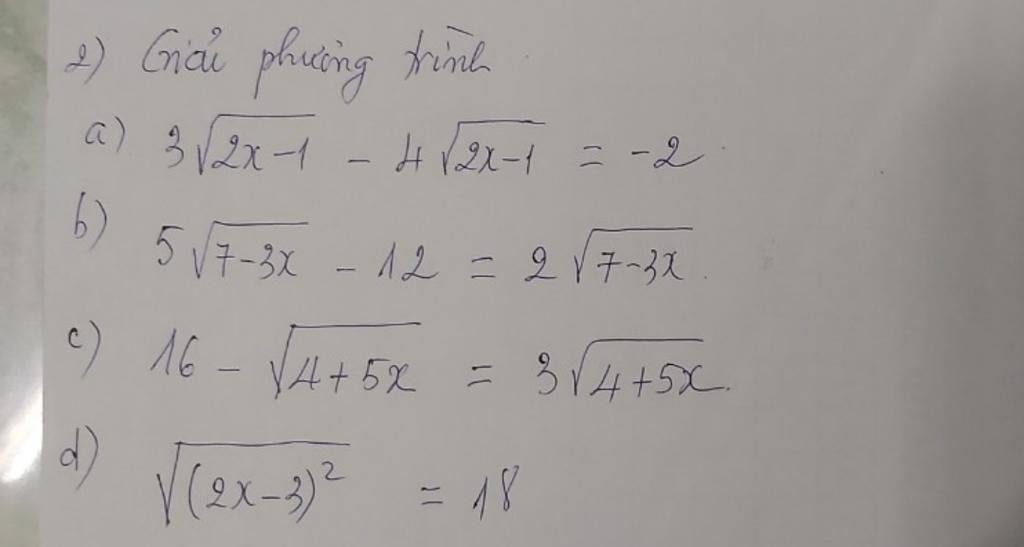 2) Giải phương trình
a) 3√(2x-1) - 4√(2x-1) = -2
b) 5√(7-3x) - 12 = 2√(7-3x).
c) 16 - √(4+5x) = 3√(4+5x).
d) √((2x-3)²) = 18